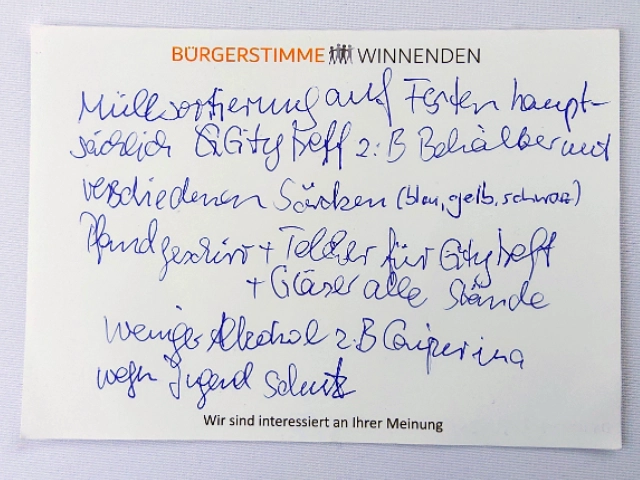 BÜRGERSTIMME WINNENDEN
Müllsortierung auf Festen haupt-
sächlich Citytreff z:B Behälter mit
verschiedenen Säcken (blau, gelb, schwarz)
Pfandgeschirr + Teller für Citytreff
+ Gläser alle Stände
weniger Alkohol z.B Caipirina
wegen Jugend Schutz
Wir sind interessiert an Ihrer Meinung